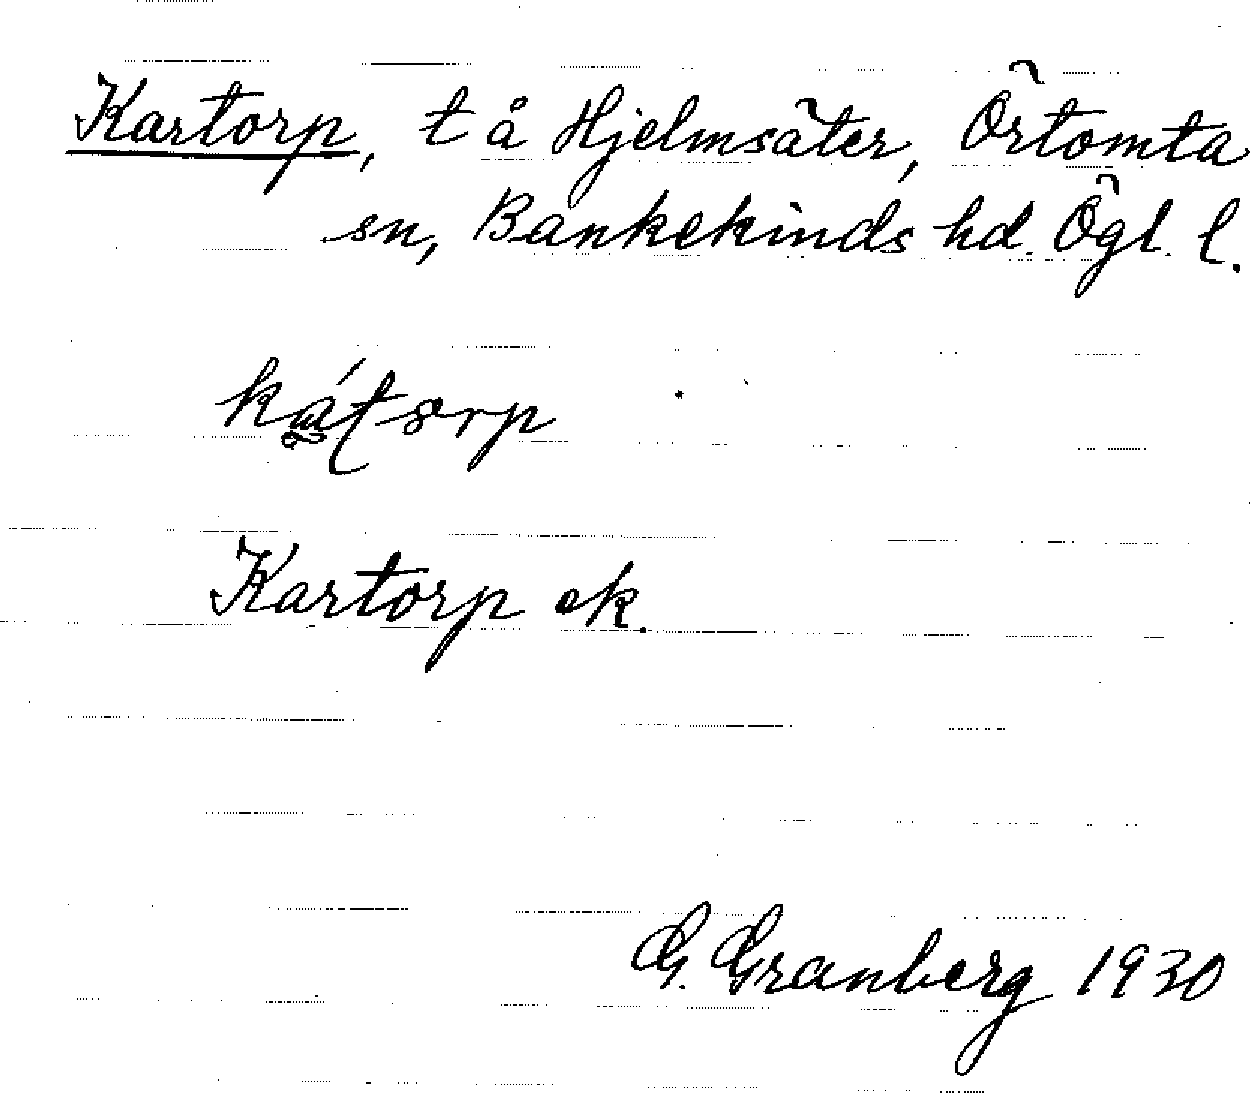 Kartorp, t å Hjelmsäter, Örtomta
sn, Bankekinds hd. Ögl. l.
Kartorp ek.
G. Granberg 1930